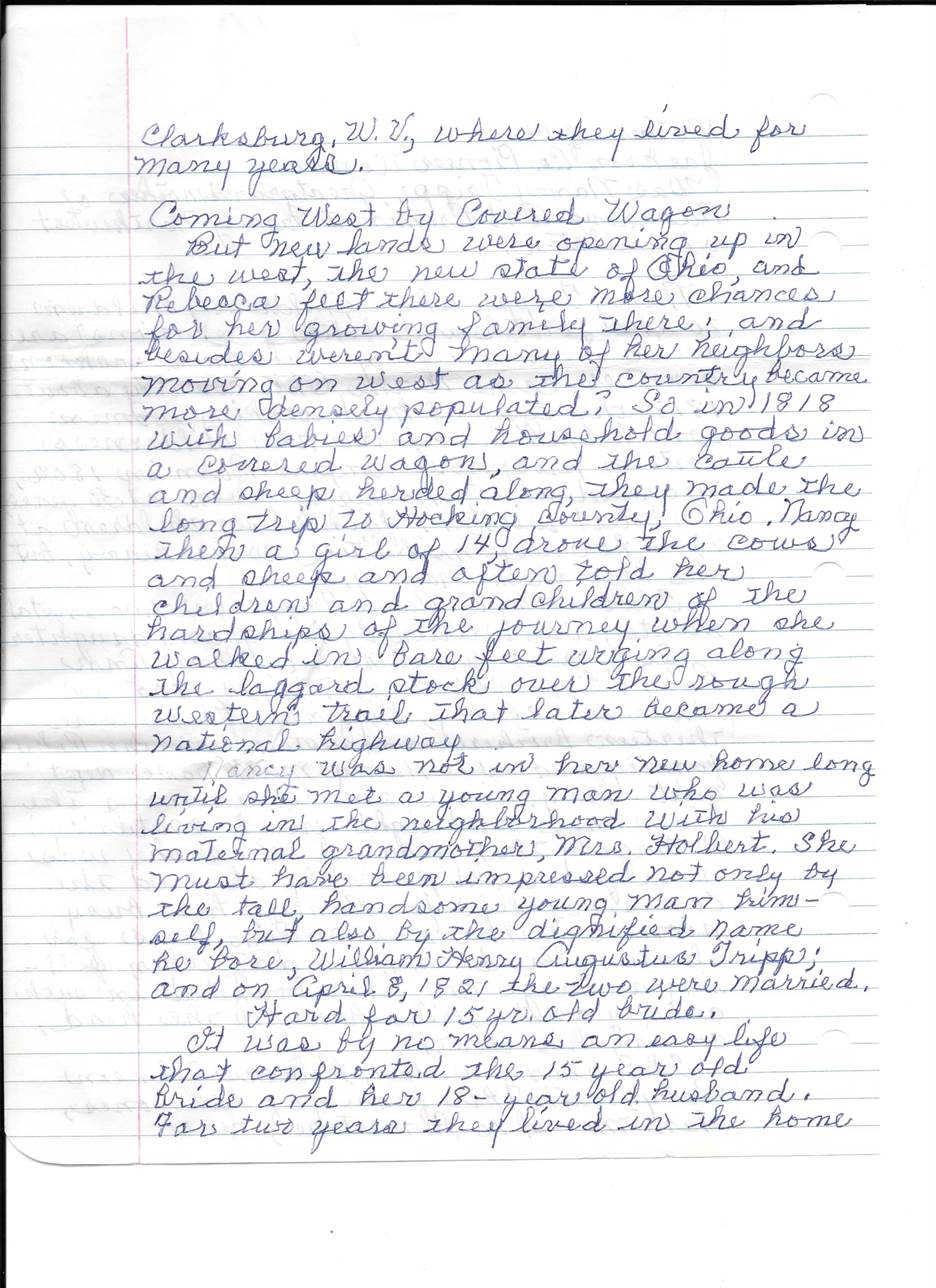 Clarksburg, W.V., where they lived for
many years.
Coming West by Covered Wagon
But new lands were opening up in
the west, the new state of Ohio, and
Rebecca felt there were more chances
for her growing family there; and
besides weren't many of her neighbors
moving on west as the country became
more densely populated? So in 1818
with babies and household goods in
a covered wagon, and the cattle
and sheep herded along, they made the
long trip to Hocking County, Ohio. Nancy
then a girl of 14, drove the cows
and sheep and often told her
children and grandchildren of the
hardships of the journey when she
walked in bare feet urging along
the laggard stock over the rough
western trail that later became a
national highway.
Nancy was not in her new home long
until she met a young man who was
living in the neighborhood with his
maternal grandmother, Mrs. Holbert. She
must have been impressed not only by
the tall, handsome young man him-
self, but also by the dignified name
he bore, William Henry Augustus Tripp;
and on April 8, 1821 the two were married.
Hard for 15 yr. old bride.
It was by no means an easy life
that confronted the 15 year old
bride and her 18-year old husband.
For two years they lived in the home